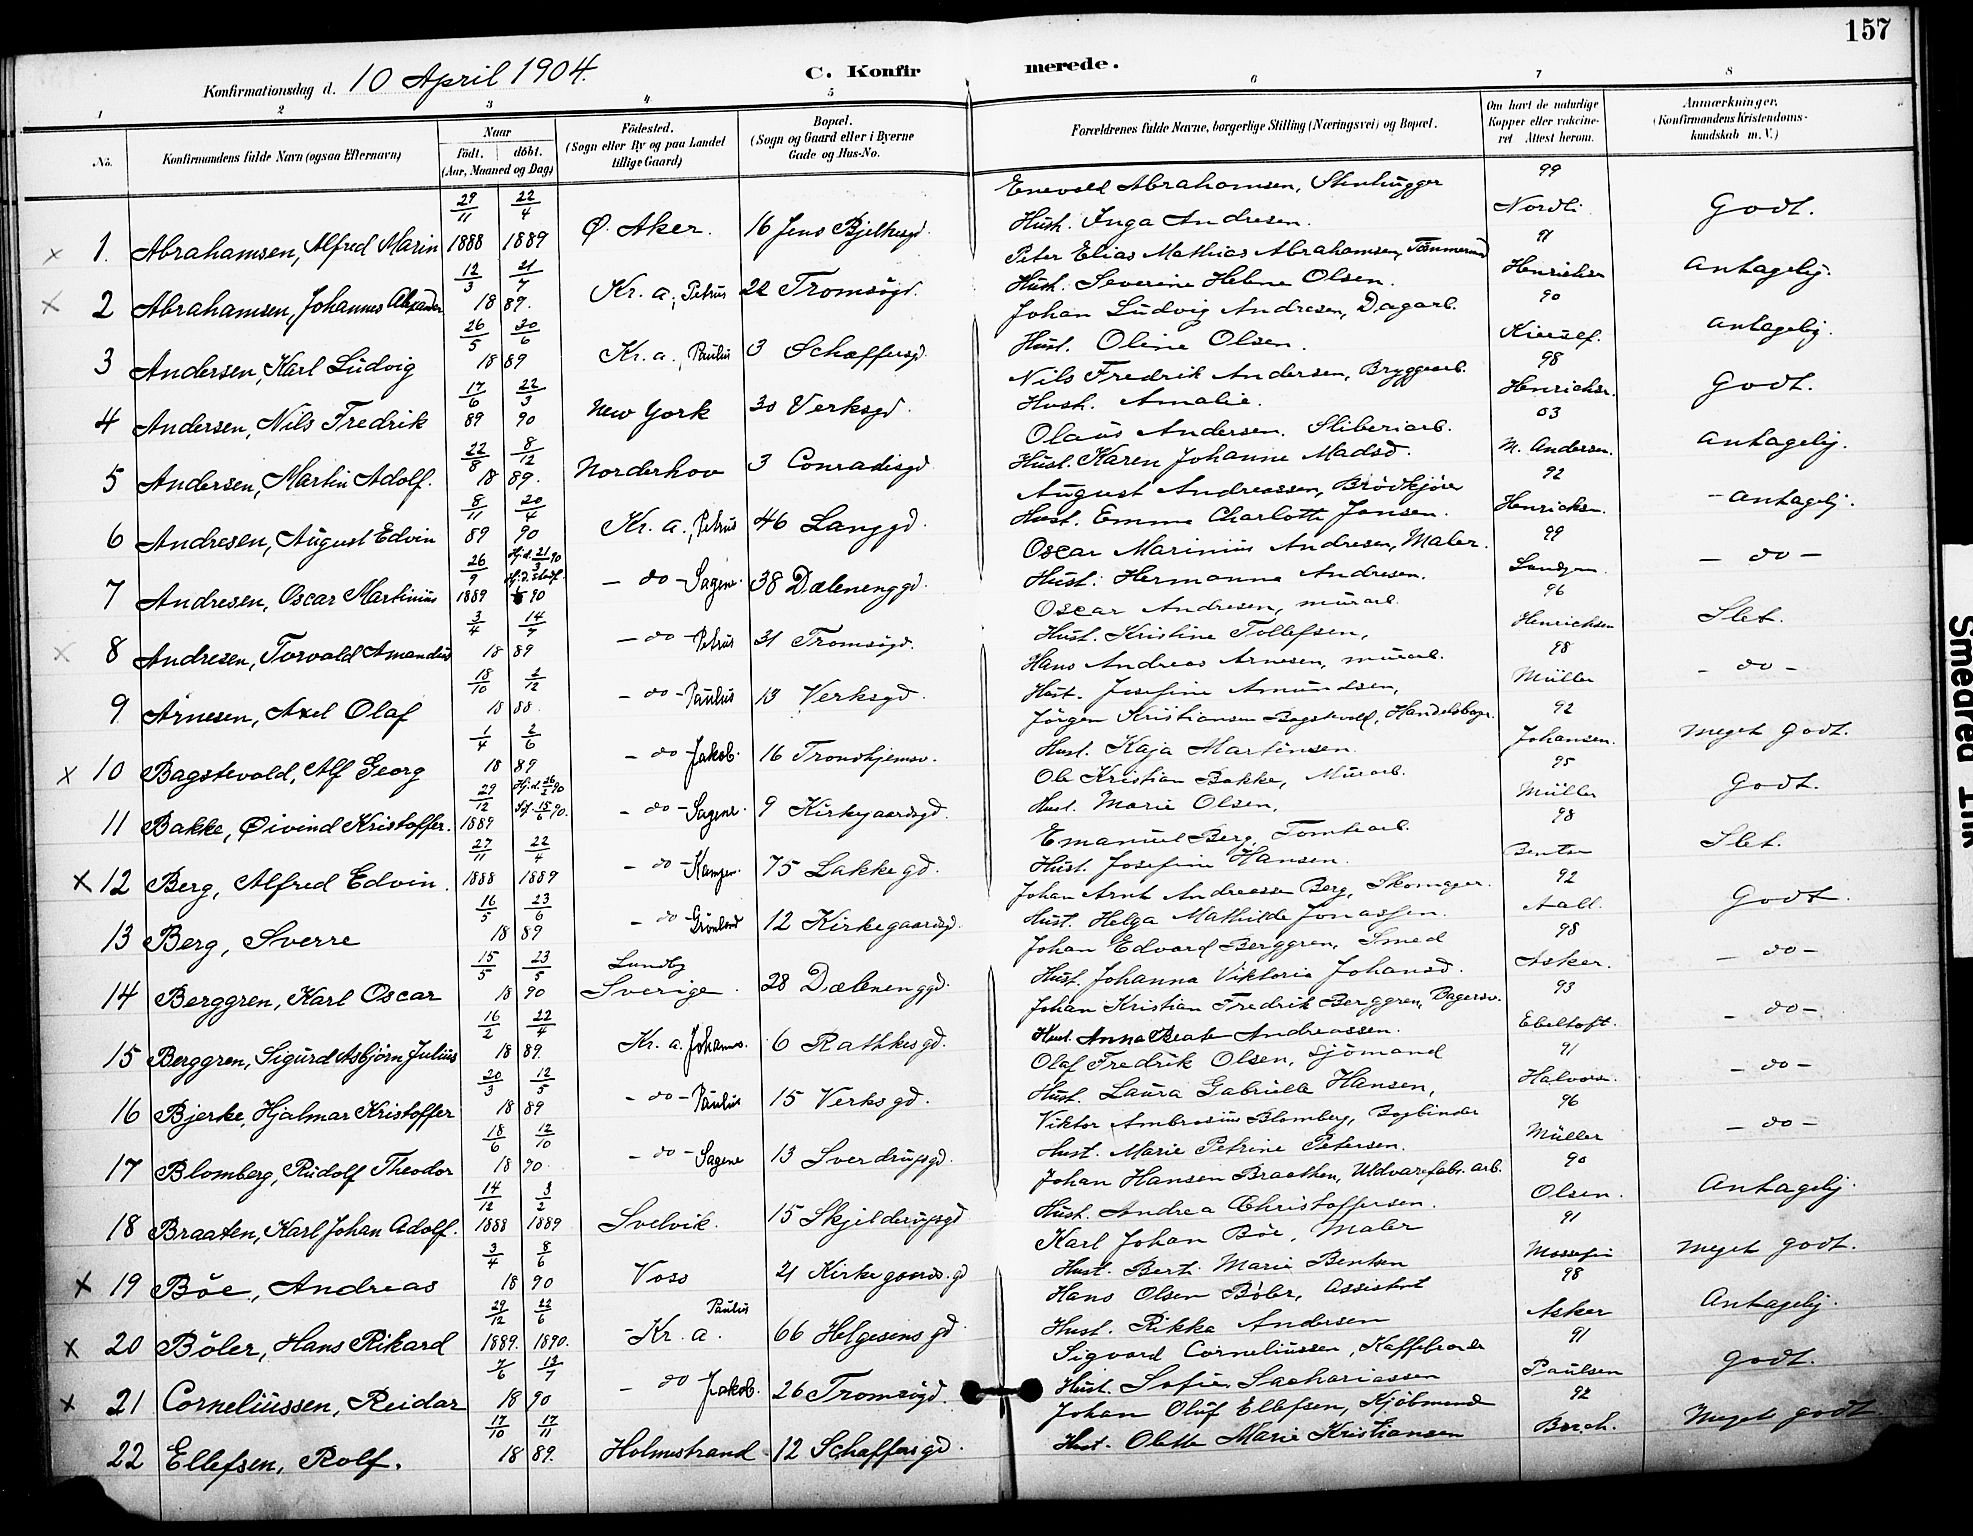 157
C. Konfirmerede.
Konfirmationsdag d. 10 April 1904.
1 2 3 4 5 6 7 8
No. Konfirmandens fulde Navn (ogsaa Efternavn) Naar født. døbt. (Aar, Maaned og Dag) Fødested. (Sogn eller By og paa Landet tillige Gaard) Bopæl. (Sogn og Gaard eller i Byerne Gade og Hus-No. Forældrenes fulde Navne, borgerlige Stilling (Næringsvei) og Bopæl. Om havt de naturlige Kopper eller vaccineret Attest herom. Anmærkninger. (Konfirmandens Kristendomskundskab m. V.)
× 1. Abrahamsen, Alfred Marin 29/11 1888 22/4 1889 Ø. Aker. 16 Jens Bjelkesgd. Enevold Abrahamsen, Stenhugger Hust. Inga Andresen. 99 Nordli Godt.
× 2 Abrahamsen, Johannes Alexander 12/3 21/7 1889. Kr.a., Petrus 22 Tromsøgd. Peter Elias Mathias Abrahamsen, Tømmermd Hust. Severine Helene Olsen. 91 Henrichsen Antagelig.
3 Andersen, Karl Ludvig 26/5 30/6 1889 Kr.a., Paulus 3 Schæffersgd. Johan Ludvig Andresen, Dagarb. Hust. Oline Olsen. 90 Antagelig.
4 Andersen, Nils Fredrik 17/6 89 22/3 90 New York 30 Verksgd. Nils Fredrik Andersen, Bryggearb. Hust. Amalie. 98 Henrichs. Godt.
5 Andersen, Martin Adolf. 22/8 8/12 1889. Norderhov 3 Conradisgd. Olaus Andersen. Sliberiarb. Hust. Karen Johanne Madsd. 03 M. Andersen. Antagelig.
6 Andresen, August Edvin 8/11 89 20/4 90 Kr.a., Petrus 46 Langgd. August Andreassen, Brødkjører Hust. Emma Charlotte Jansen. 92 Henrichsen. - Antagelig.
7 Andresen, Oscar Martinius 26/9 1889 Hj.d. 21/3 90 90 - do - Sagene. 38 Dælenenggd. Oscar Marinius Andresen, Maler. Hust. Hermanna Andresen. 99 - do -
× 8 Andresen, Torvald Amandus 3/4 14/7 1889 - do - Petrus 31 Tromsøgd. Oscar Andresen, murarb. Hust. Kristine Tollefsen, 96 Henrichsen Slet.
9 Arnesen, Axel Olaf 18/10 2/12 1888. - do - Paulus 13 Verksgd. Hans Andreas Arnesen, murarb. Hust. Josefine Amundsen, 98 Müller - do -
× 10 Bagstevold, Alf Georg 1/4 2/6 1889 - do - Jakob. 16 Trondhjemsv. Jørgen Kristiansen Bagstevold, Hust. Kaja Martinsen. 92 Johansen. Meget godt.
11 Bakke, Øivind Kristoffer. 29/12 1889 Hj.d. 26/2 90 15/6 90. - do - Sagene. 9 Kirkegaardsgd. Ole Kristian Bakke, Murarb. Hust. Marie Olsen, 95 Müller Godt.
× 12 Berg, Alfred Edvin. 27/11 1888 22/4 1889 - do - Kampen. 75 Lakkegd. Emanuel Berg, Tomtearb. Hust. Josefine Hansen. 98 Bentsen Slet.
13 Berg, Sverre 16/5 23/6 1889 - do - Grønland 12 Kirkegaardsgd. Johan Arnt Andreassen Berg, Skomager. Hust. Helga Mathilde Jonassen. 92 Aall. Godt.
14 Berggren, Karl Oscar 15/5 23/5 1890 Lundby Sverige. 28 Dælenenggd. Johan Edvard Berggren, Smed Hust. Johanna Viktoria Johansd. 98 Asker. - do -
15 Berggren, Sigurd Asbjørn Julius 16/2 22/4 1889. Kr.a. Johannes. 6 Rathkesgd. Johan Kristian Fredrik Berggren, Bagersv. Hust. Anna Beate Andreassen. 93 Ebeltoft. - do -
16 Bjerke, Hjalmar Kristoffer 20/3 12/5 1889 - do - Paulus 15 Verksgd. Olaf Fredrik Olsen, Sjømand Hust. Laura Gabrielle Hansen, 91 Halvors. - do -
17 Blomberg, Rudolf Theodor 18/6 12/10 1890. - do - Sagene 13 Sverdrupsgd. Viktor Ambrosius Blomberg, Bogbinder Hust. Marie Petrine Petersen. 96 Müller - do -
18 Braaten, Karl Johan Adolf. 14/12 1888 3/2 1889 Svelvik. 15 Skjelderupsgd Johan Hansen Braathen, Uldvarefabr. arb. Hust. Andrea Christoffersen. 90 Olsen. Antagelig
× 19 Bøe, Andreas 3/4 8/6 1890 Voss 21 Kirkegaards.gd Karl Johan Bøe, Maler Hust. Bert. Marie Bentsen 91 Meget godt.
× 20 Bøler, Hans Rikard 29/12 1889. 22/6 1890. - Kr.a. Paulus 66 Helgesensgd. Hans Olsen Bøler, Assistent Hust. Rikka Andersen 98 Asker Antagelig.
× 21 Corneliussen, Reidar 7/6 13/7 1890 - do Jakob. 26 Tromsøgd. Sigvard Corneliussen, Hust. Sofie Sachariassen 91 Paulsen Godt.
22 Ellefsen, Rolf. 17/10 17/11 1889. Holmestrand 12 Schæffersgd. Johan Oluf Ellefsen, Kjøbmand Hust. Olette Marie Kristiansen 92 Borch. Meget godt
Smeared Ink